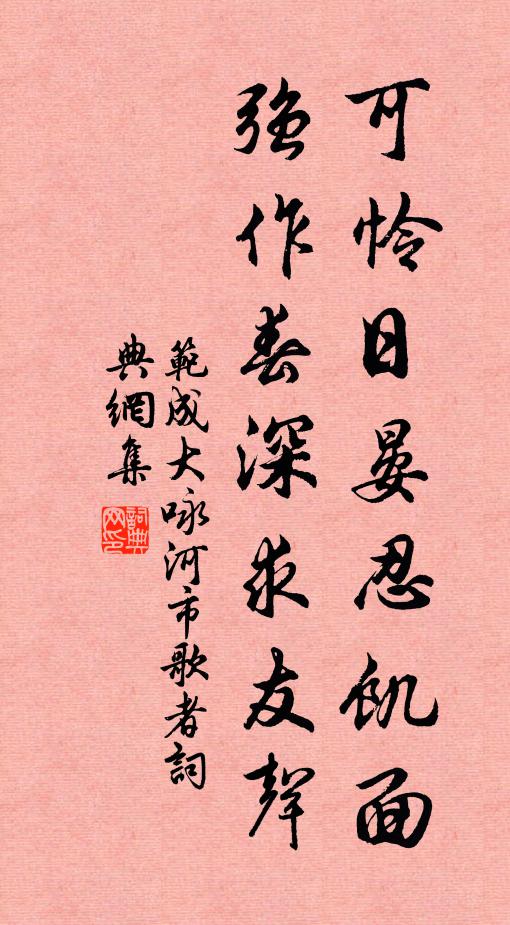 可怜日晏忍飢面
強作春深求友聲
範成大咏河市歌者詞
典網集
詞典网印